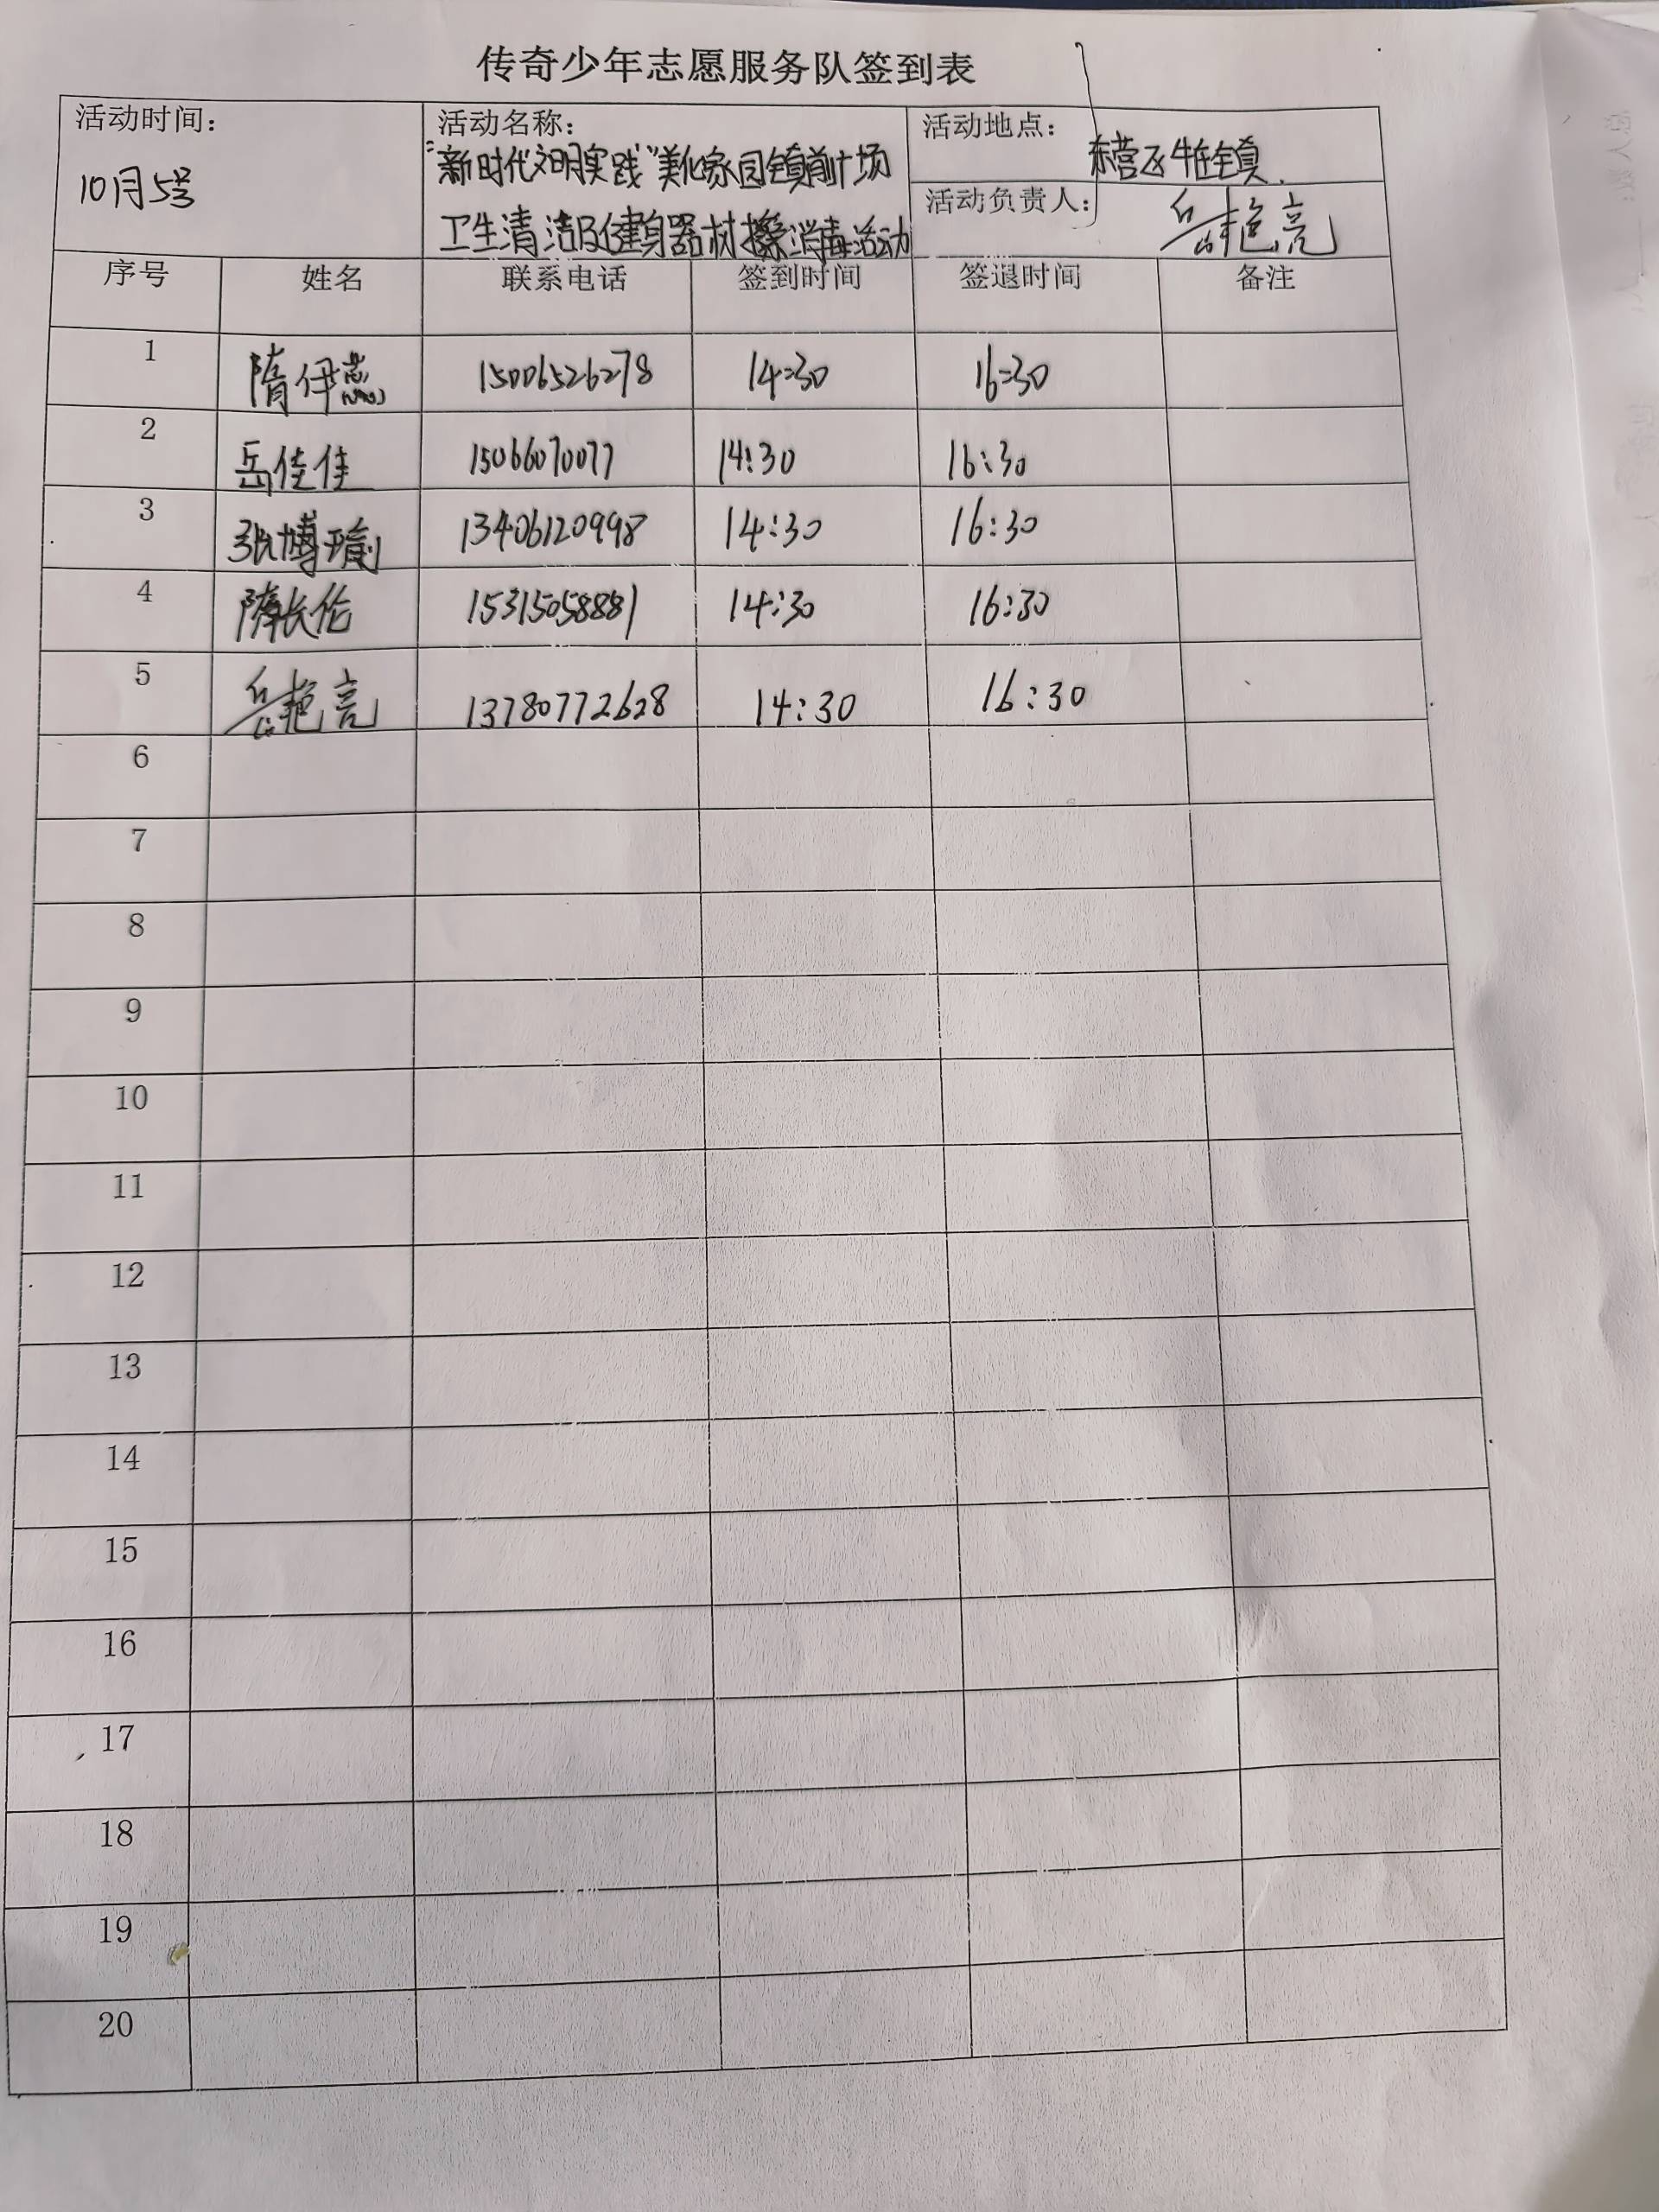 传奇少年志愿服务队签到表
活动时间: 10月5号
活动名称:
"新时代文明实践"美化家园镇前广场
卫生清洁及健身器材擦消毒活动
活动地点: 东营区牛庄镇.
活动负责人: 岳艳亮
序号 姓名 联系电话 签到时间 签退时间 备注
1 隋伊蕊 15006526278 14:30 16:30
2 岳佳佳 15066070077 14:30 16:30
3 张博瑜 13406120998 14:30 16:30
4 隋长伦 15315058881 14:30 16:30
5 岳艳亮 13780772628 14:30 16:30
6
7
8
9
10
11
12
13
14
15
16
17
18
19
20